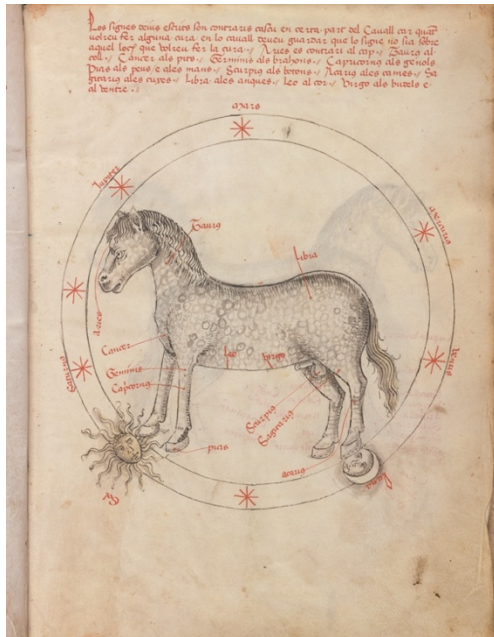 Les signes deius escrits son contraris casću en certa part del Cauall car quāt
uolreu fer alguna cura en lo cauall deueu guardar que lo signe no sia sobre
aquel loch que uolreu fer la cura. Aries es contrari al cap. Taurꝰ al
coll. Cancer als pits. Geminis als brahons. Capricornꝰ als genols
Piçis als peus e ales mans. Scorpiꝰ als botons. Acariꝰ ales cames. Sa
gitariꝰ ales cuxes. Libra ales anques. Leo al cor. Virgo als budels e
al ventre.
mars
Jupiter
mercuris
Taurꝰ
Libra
aries
Cancer
leo
virgo
uenus
Saturnus
Geminis
Capricornꝰ
Scorpiꝰ
Sagitariꝰ
piscis
acariꝰ
luna
Sol